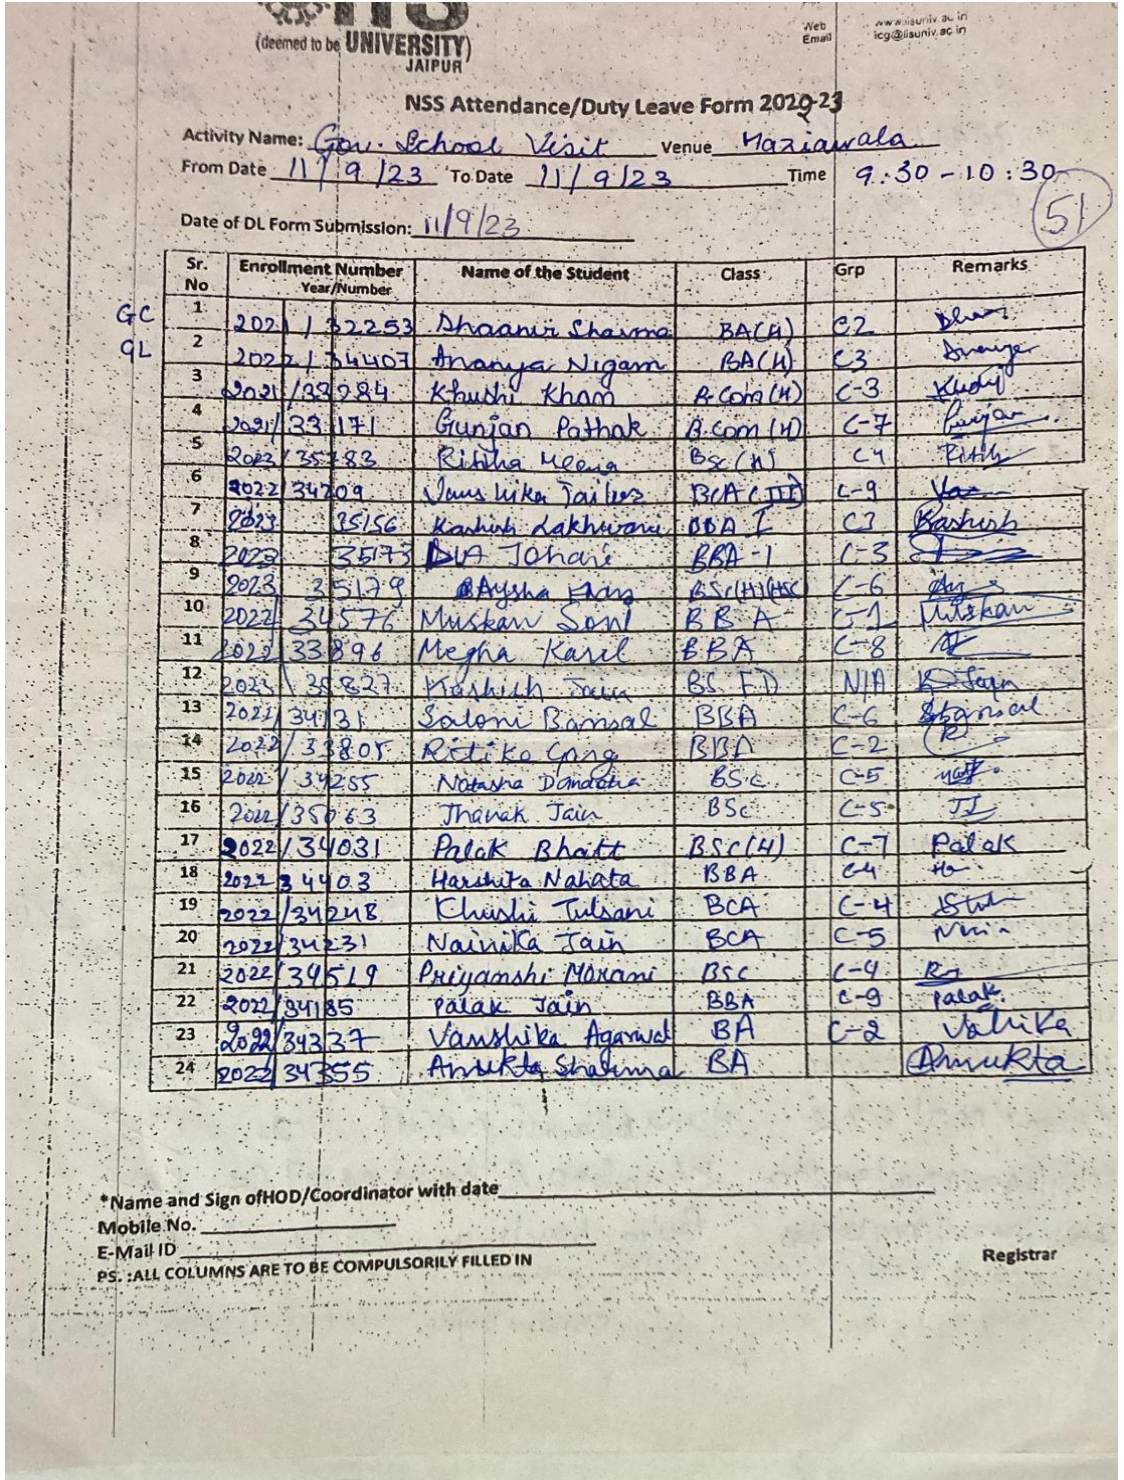 IIS
(deemed to be UNIVERSITY)
JAIPUR
Web www.iisuniv.ac.in
Email icg@iisuniv.ac.in
NSS Attendance/Duty Leave Form 2022-23
Activity Name: Gov. School Visit Venue Haziawala
From Date 11/9/23 To Date 11/9/23 Time 9:30-10:30
51
Date of DL Form Submission: 11/9/23
Sr. No Enrollment Number Year/Number Name of the Student Class Grp Remarks
GC 1 2021/32253 Sharma BA(H) C2
GL 2 2022/34407 Ananya Nigam BA(H) C3 Ananya
3 2021/33284 Khushi Kham B.Com(H) C-3
4 2021/33171 Gunjan Pathak B.Com(H) C-7 Gunjan
5 2023/35283 Ritika Meena BSc(H) C4
6 2022/34209 Vanshika BCA(III) C-9
7 2023 35156 Kashish Lakhwani BBA I C3 Kashish
8 2023 35173 DIA Johari BBA-I C-3
9 2023 35179 Aysha Khan BSc(H)(HSC) C-6
10 2022 34576 Muskan Soni BBA C-1 Muskan
11 2022 33896 Megha Karel BBA C-8
12 2023 35827 Kashish Jain BS FD N/A K Jain
13 2022/34131 Saloni Bansal BBA C-6 SBansal
14 2022/33805 Ritika Garg BBA C-2
15 2022/34255 Natasha BSc C-5
16 2022/35063 Jhanak Jain BSc C-5 JJ
17 2022/34031 Palak Bhatt BSc(H) C-7 Palak
18 2022 34403 Harshita Nahata BBA C-4
19 2022/34248 Khushi Tulsani BCA C-4
20 2022/34231 Nainika Jain BCA C-5
21 2022/34519 Priyanshi Morani BSC C-4
22 2022/34185 Palak Jain BBA C-9 Palak
23 2022/34337 Vanshika Agarwal BA C-2
24 2022/34355 Amukta Sharma BA Amukta
*Name and Sign ofHOD/Coordinator with date
Mobile No.
E-Mail ID
Registrar
PS. :ALL COLUMNS ARE TO BE COMPULSORILY FILLED IN